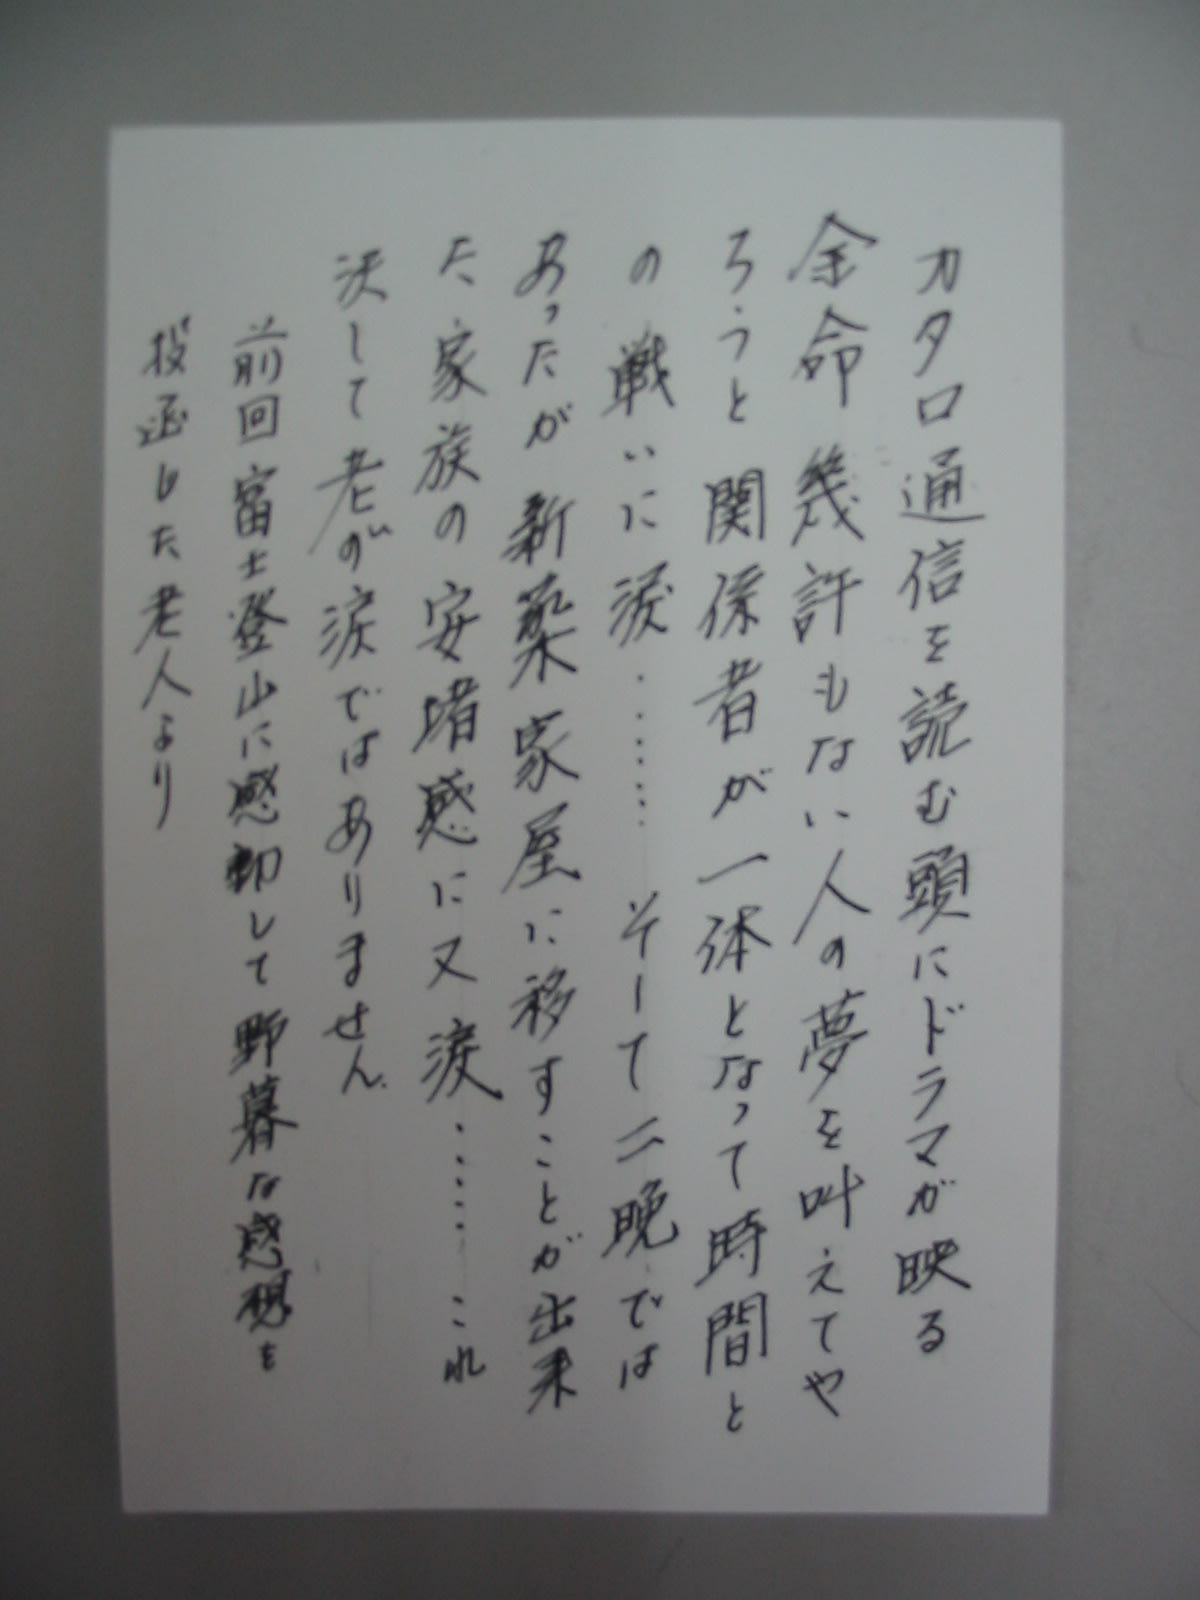 カタロ通信を読む頭にドラマが映る
余命幾許もない人の夢を叶えてや
ろうと関係者が一体となって時間と
の戦いに涙・・・・・・そして二晩では
あったが新築家屋に移すことが出来
た家族の安堵感に又涙・・・・・・これ
決して老の涙ではありません
前回富士登山に感動して野暮な感想を
投函した老人より